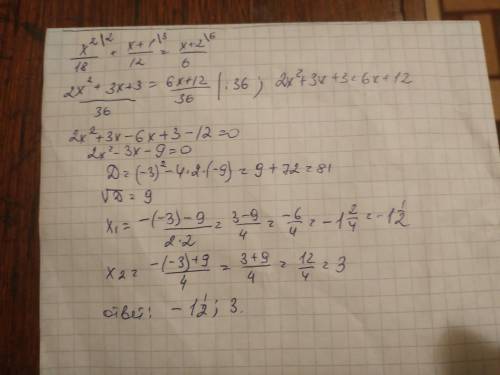 x²\2/18 + x+1\3/12 = x+2\6/6
2x²+3x+3/36 = 6x+12/36 | ·36 ; 2x²+3x+3=6x+12
2x²+3x-6x+3-12=0
2x²-3x-9=0
D=(-3)²-4·2·(-9)=9+72=81
√D=9
x₁=-(-3)-9/2·2=3-9/4=-6/4=-1 2/4=-1 1/2
x₂=-(-3)+9/4=3+9/4=12/4=3
ответ: -1 1/2; 3.